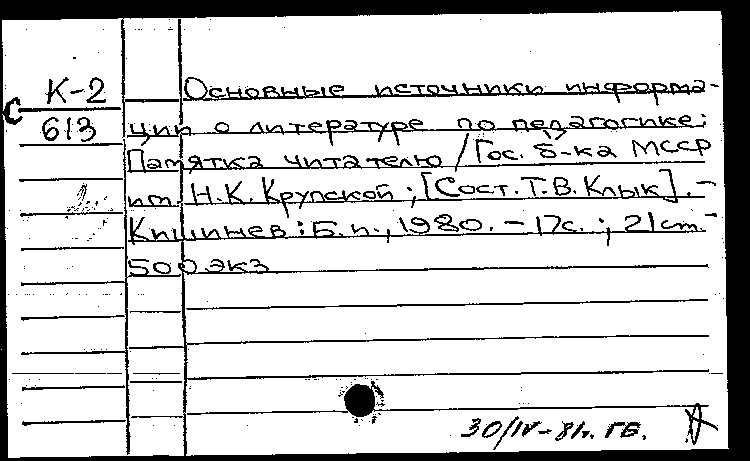 К-2 Основные источники информа-
С 613 ции о литературе по педагогике:
Памятка читателю / Гос. б-ка МССР
им. Н.К. Крупской; [Сост. Т.В. Клык]. -
Кишинев: Б.и., 1980. - 17с.; 21см. -
500 экз
30/IV-81г. ГБ.